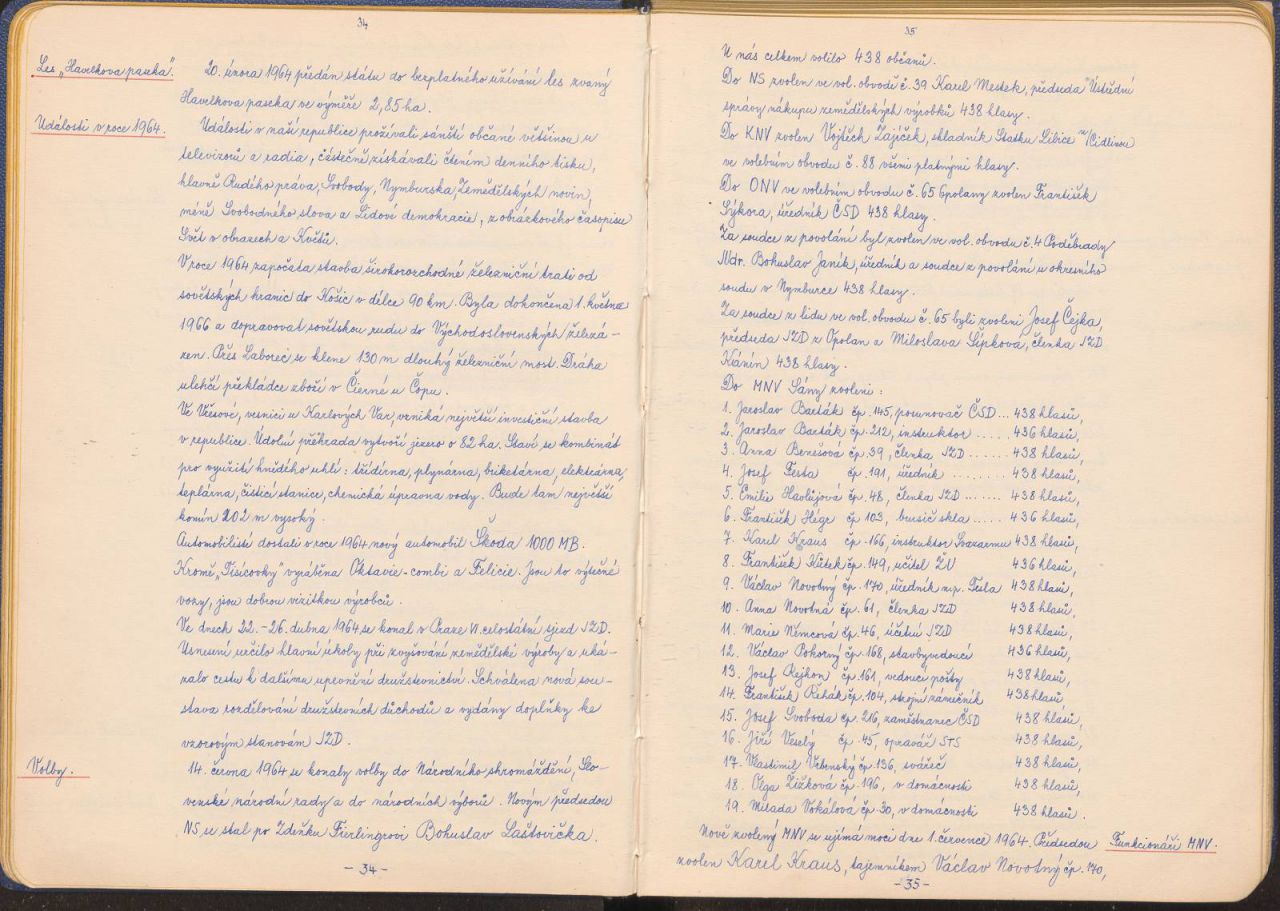 34
Les „Havelkova paseka".
20. února 1964 předán státu do bezplatného užívání les zvaný
Havelkova paseka ve výměře 2,85 ha.
Události v roce 1964.
Události v naší republice prožívali sánští občané většinou u
televizorů a radia, částečně získávali čtením denního tisku,
hlavně Rudého práva, Svobody, Nymburska, Zemědělských novin,
méně Svobodného slova a Lidové demokracie, z obrázkového časopisu
Svět v obrazech a Květů.
V roce 1964 započata stavba širokorozchodné železniční trati od
sovětských hranic do Košic v délce 90 km. Byla dokončena 1. května
1966 a dopravovat sovětskou rudu do Východoslovenských železá-
ren. Přes Laborec se klene 130 m dlouhý železniční most. Dráha
ulehčí překládce zboží v Čierné u Čopu.
Ve Vřesové, vesnici u Karlových Var, vzniká největší investiční stavba
v republice. Údolní přehrada vytvoří jezero o 82 ha. Staví se kombinát
pro využití hnědého uhlí: třídírna, plynárna, briketárna, elektrárna,
teplárna, čisticí stanice, chemická úpravna vody. Bude tam největší
komín 202 m vysoký.
Automobilisté dostali v roce 1964 nový automobil Škoda 1000 MB.
Kromě „Tisícovky" vyráběna Oktavie-combi a Felicie. Jsou to výtečné
vozy, jsou dobrou vizitkou výrobců.
Ve dnech 22.-26. dubna 1964 se konal v Praze VI. celostátní sjezd JZD.
Usnesení určilo hlavní úkoly při zvyšování zemědělské výroby a uká-
zalo cestu k dalšímu upevnění družstevnictví. Schválena nová sou-
stava rozdělování družstevních důchodů a vydány doplňky ke
vzorovým stanovám JZD.
Volby.
14. června 1964 se konaly volby do Národního shromáždění, Slo-
venské národní rady a do národních výborů. Novým předsedou
NS se stal po Zdeňku Fierlingrovi Bohuslav Laštovička.
- 34 -
35
U nás celkem volilo 438 občanů.
Do NS zvolen ve vol. obvodě č. 39 Karel Mestek, předseda Ústřední
správy nákupu zemědělských výrobků 438 hlasy.
Do KNV zvolen Vojtěch Zajíček, skladník Statku Libice n/Cidlinou
ve volebním obvodu č. 88 všemi platnými hlasy.
Do ONV ve volebním obvodu č. 65 Opolany zvolen František
Sýkora, úředník ČSD 438 hlasy.
Za soudce z povolání byl zvolen ve vol. obvodu č. 4 Poděbrady
JUdr. Bohuslav Janík, úředník a soudce z povolání u okresního
soudu v Nymburce 438 hlasy.
Za soudce z lidu ve vol. obvodu č. 65 byli zvoleni Josef Čejka,
předseda JZD z Opolan a Miloslava Šípková, členka JZD
Kánín 438 hlasy.
Do MNV Sány zvoleni:
1. Jaroslav Barták čp. 145, posunovač ČSD... 438 hlasů,
2. Jaroslav Barták čp. 212, instruktor ..... 436 hlasů,
3. Anna Benešová čp. 39, členka JZD ...... 438 hlasů,
4. Josef Festa čp. 191, úředník ........ 438 hlasů,
5. Emilie Havlůjová čp. 48, členka JZD ....... 438 hlasů,
6. František Hégr čp. 103, brusič skla ..... 436 hlasů,
7. Karel Kraus čp. 166, instruktor Svazarmu 438 hlasů,
8. František Kůtek čp. 149, učitel ZU 436 hlasů,
9. Václav Novotný čp. 170, úředník n.p. Tesla 438 hlasů,
10. Anna Novotná čp. 61, členka JZD 438 hlasů,
11. Marie Němcová čp. 46, účetní JZD 438 hlasů,
12. Václav Pokorný čp. 168, stavbyvedoucí 436 hlasů,
13. Josef Rejhon čp. 161, vedoucí pošty 438 hlasů,
14. František Řehák čp. 104, strojní zámečník 438 hlasů,
15. Josef Svoboda čp. 216, zaměstnanec ČSD 438 hlasů,
16. Jiří Veselý čp. 45, opravář STS 438 hlasů,
17. Vlastimil Vrbenský čp. 136, svářeč 438 hlasů,
18. Olga Žižková čp. 196, v domácnosti 438 hlasů,
19. Milada Vokálová čp. 30, v domácnosti 438 hlasů.
Nově zvolený MNV se ujímá moci dne 1. července 1964. Předsedou
Funkcionáři MNV.
zvolen Karel Kraus, tajemníkem Václav Novotný čp. 170,
- 35 -